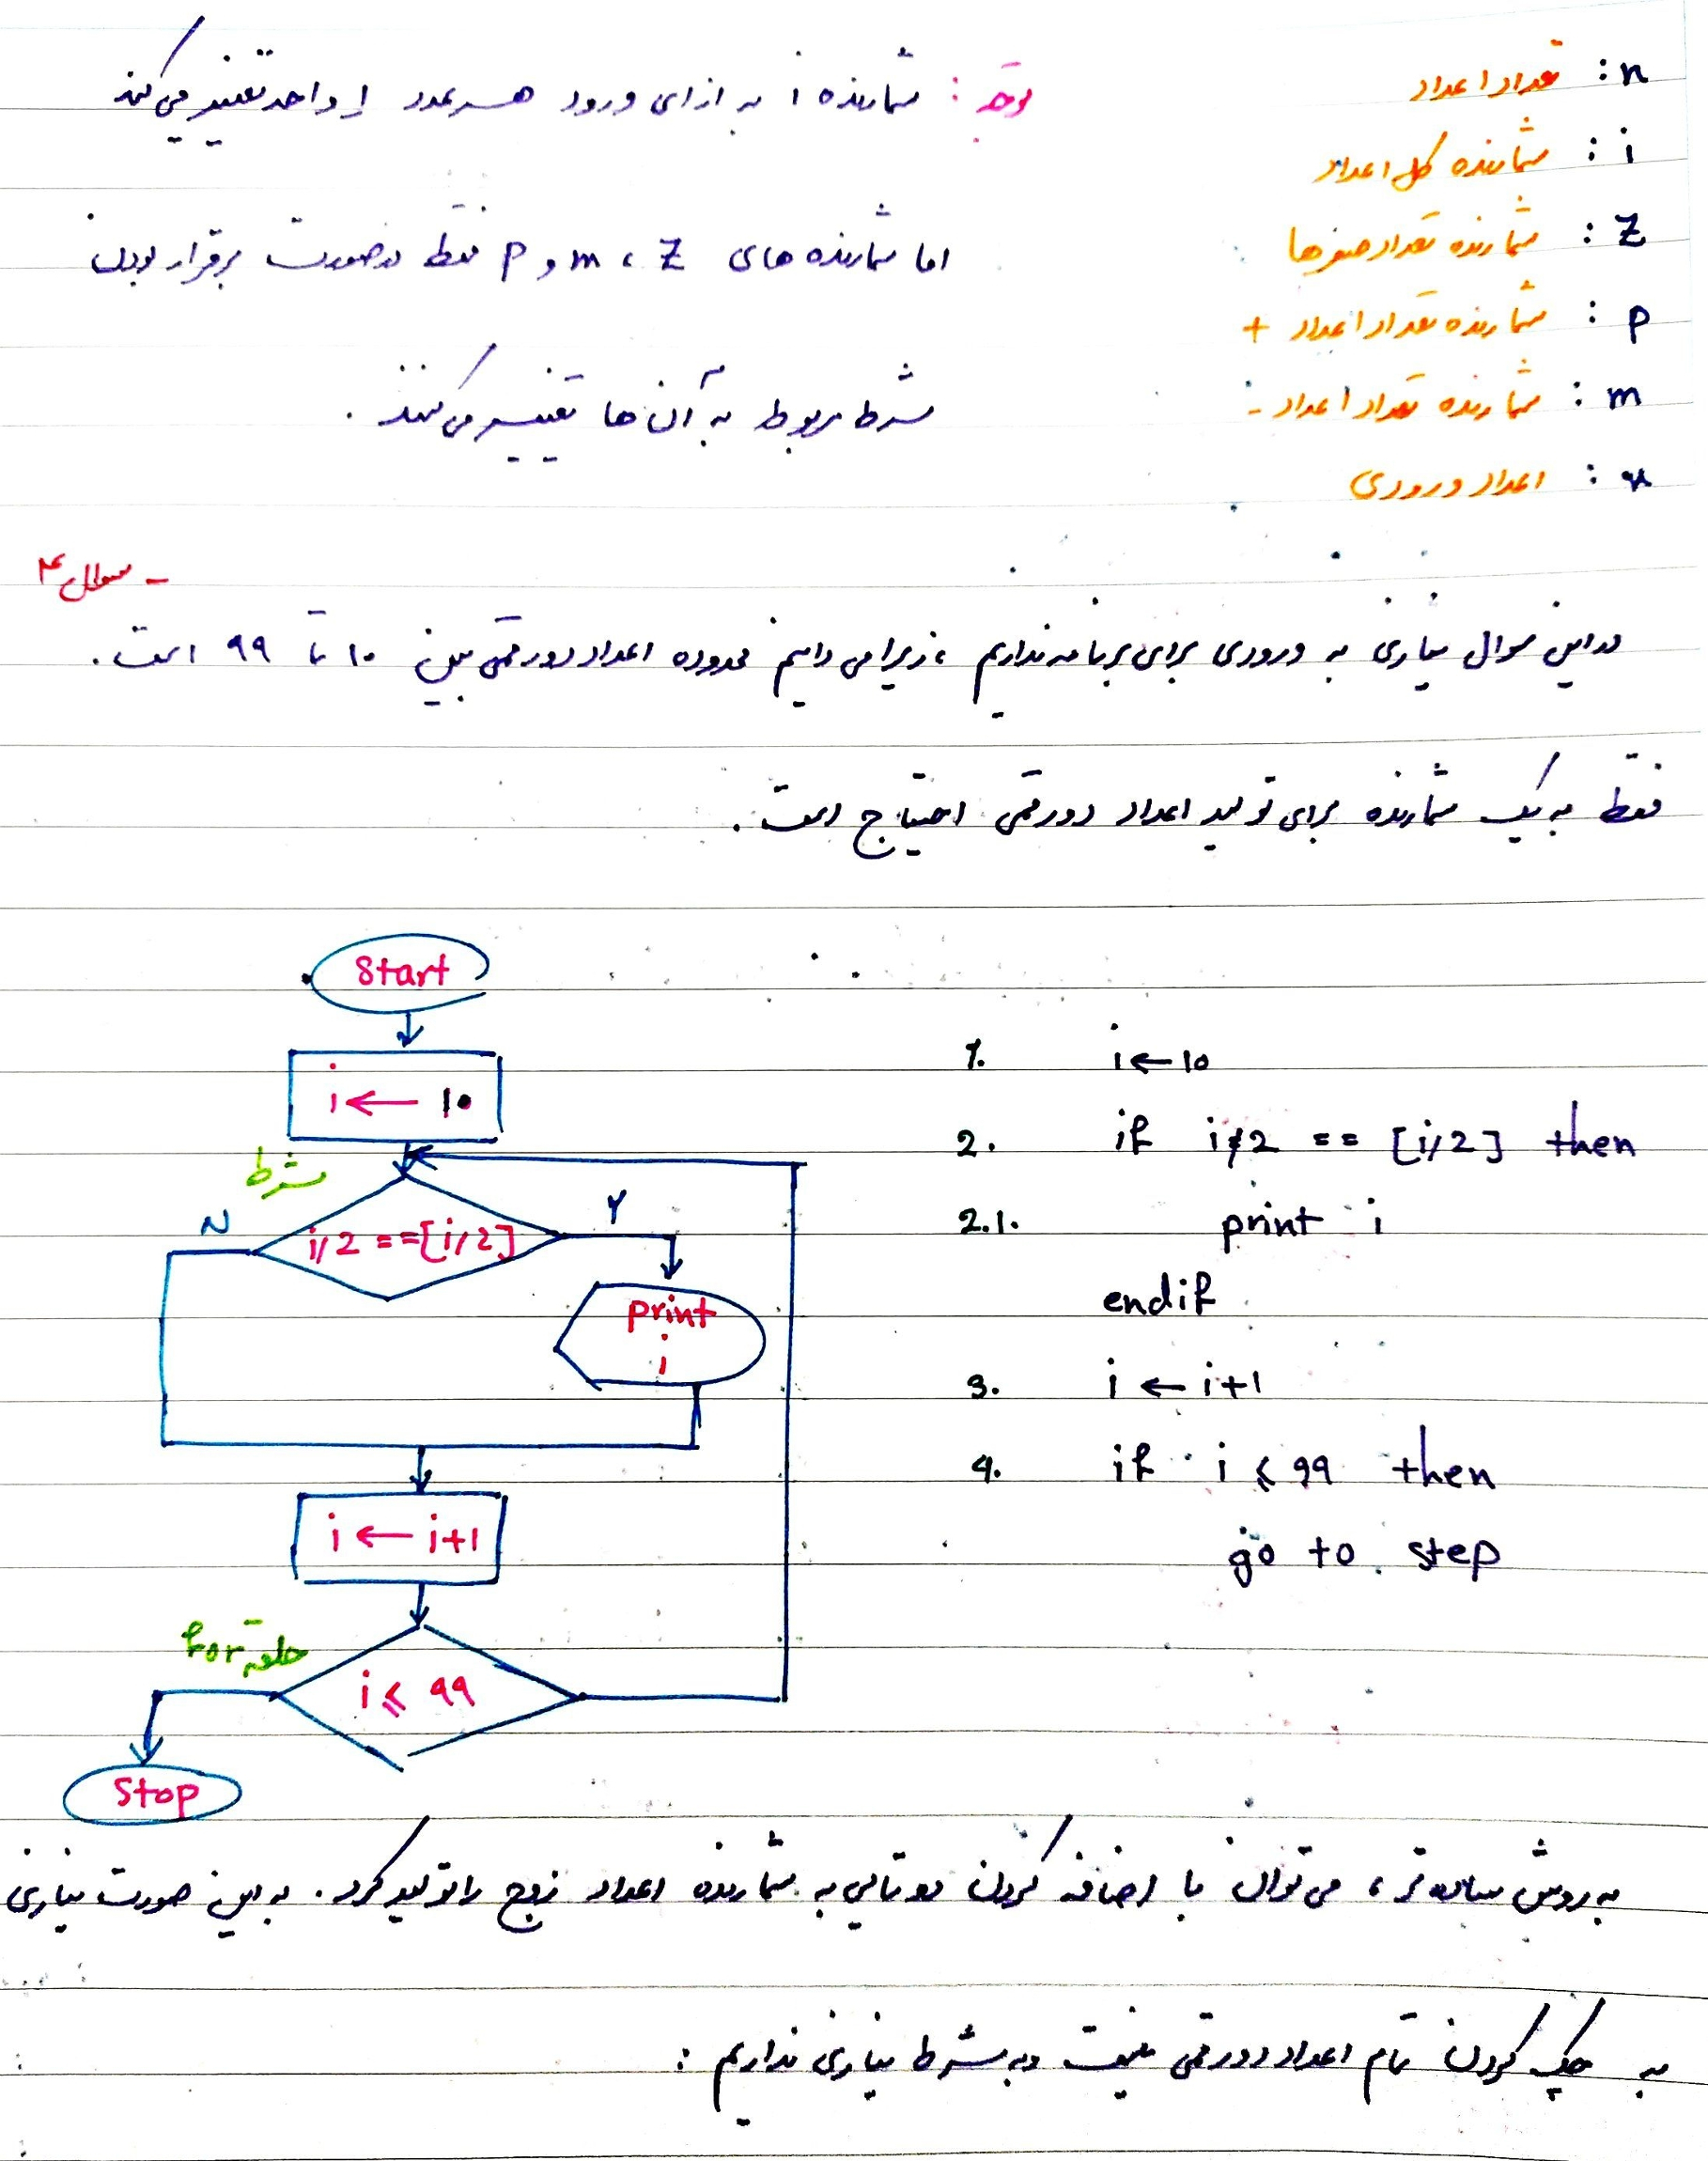 n : تعداد اعداد
i : شمارنده کل اعداد
z : شمارنده تعداد صفرها
p : شمارنده تعداد اعداد +
m : شمارنده تعداد اعداد -
x : اعداد ورودی
توجه : شمارنده i به ازای ورود هر عدد ۱ واحد تغییر می‌کند
اما شمارنده های z ، m و p فقط در صورت برقرار بودن
شرط مربوط به آن ها تغییر می‌کنند .
- سوال ۴
در این سوال نیازی به ورودی برای برنامه نداریم ، زیرا می دانیم محدوده اعداد دو رقمی بین ۱۰ تا ۹۹ است .
فقط به یک شمارنده برای تولید اعداد دو رقمی احتیاج است .
Start
i ← 10
شرط
N
i/2 ==[i/2]
Y
print
i
i ← i+1
حلقه for
i ≤ 99
Stop
1. i ← 10
2. if i/2 == [i/2] then
2.1. print i
endif
3. i ← i+1
4. if i ≤ 99 then
go to step
به روش ساده تر ، می توان با اضافه کردن دو تایی به شمارنده اعداد زوج را تولید کرد . به این صورت نیازی
به چک کردن تمام اعداد دو رقمی نیست و به شرط نیازی نداریم :